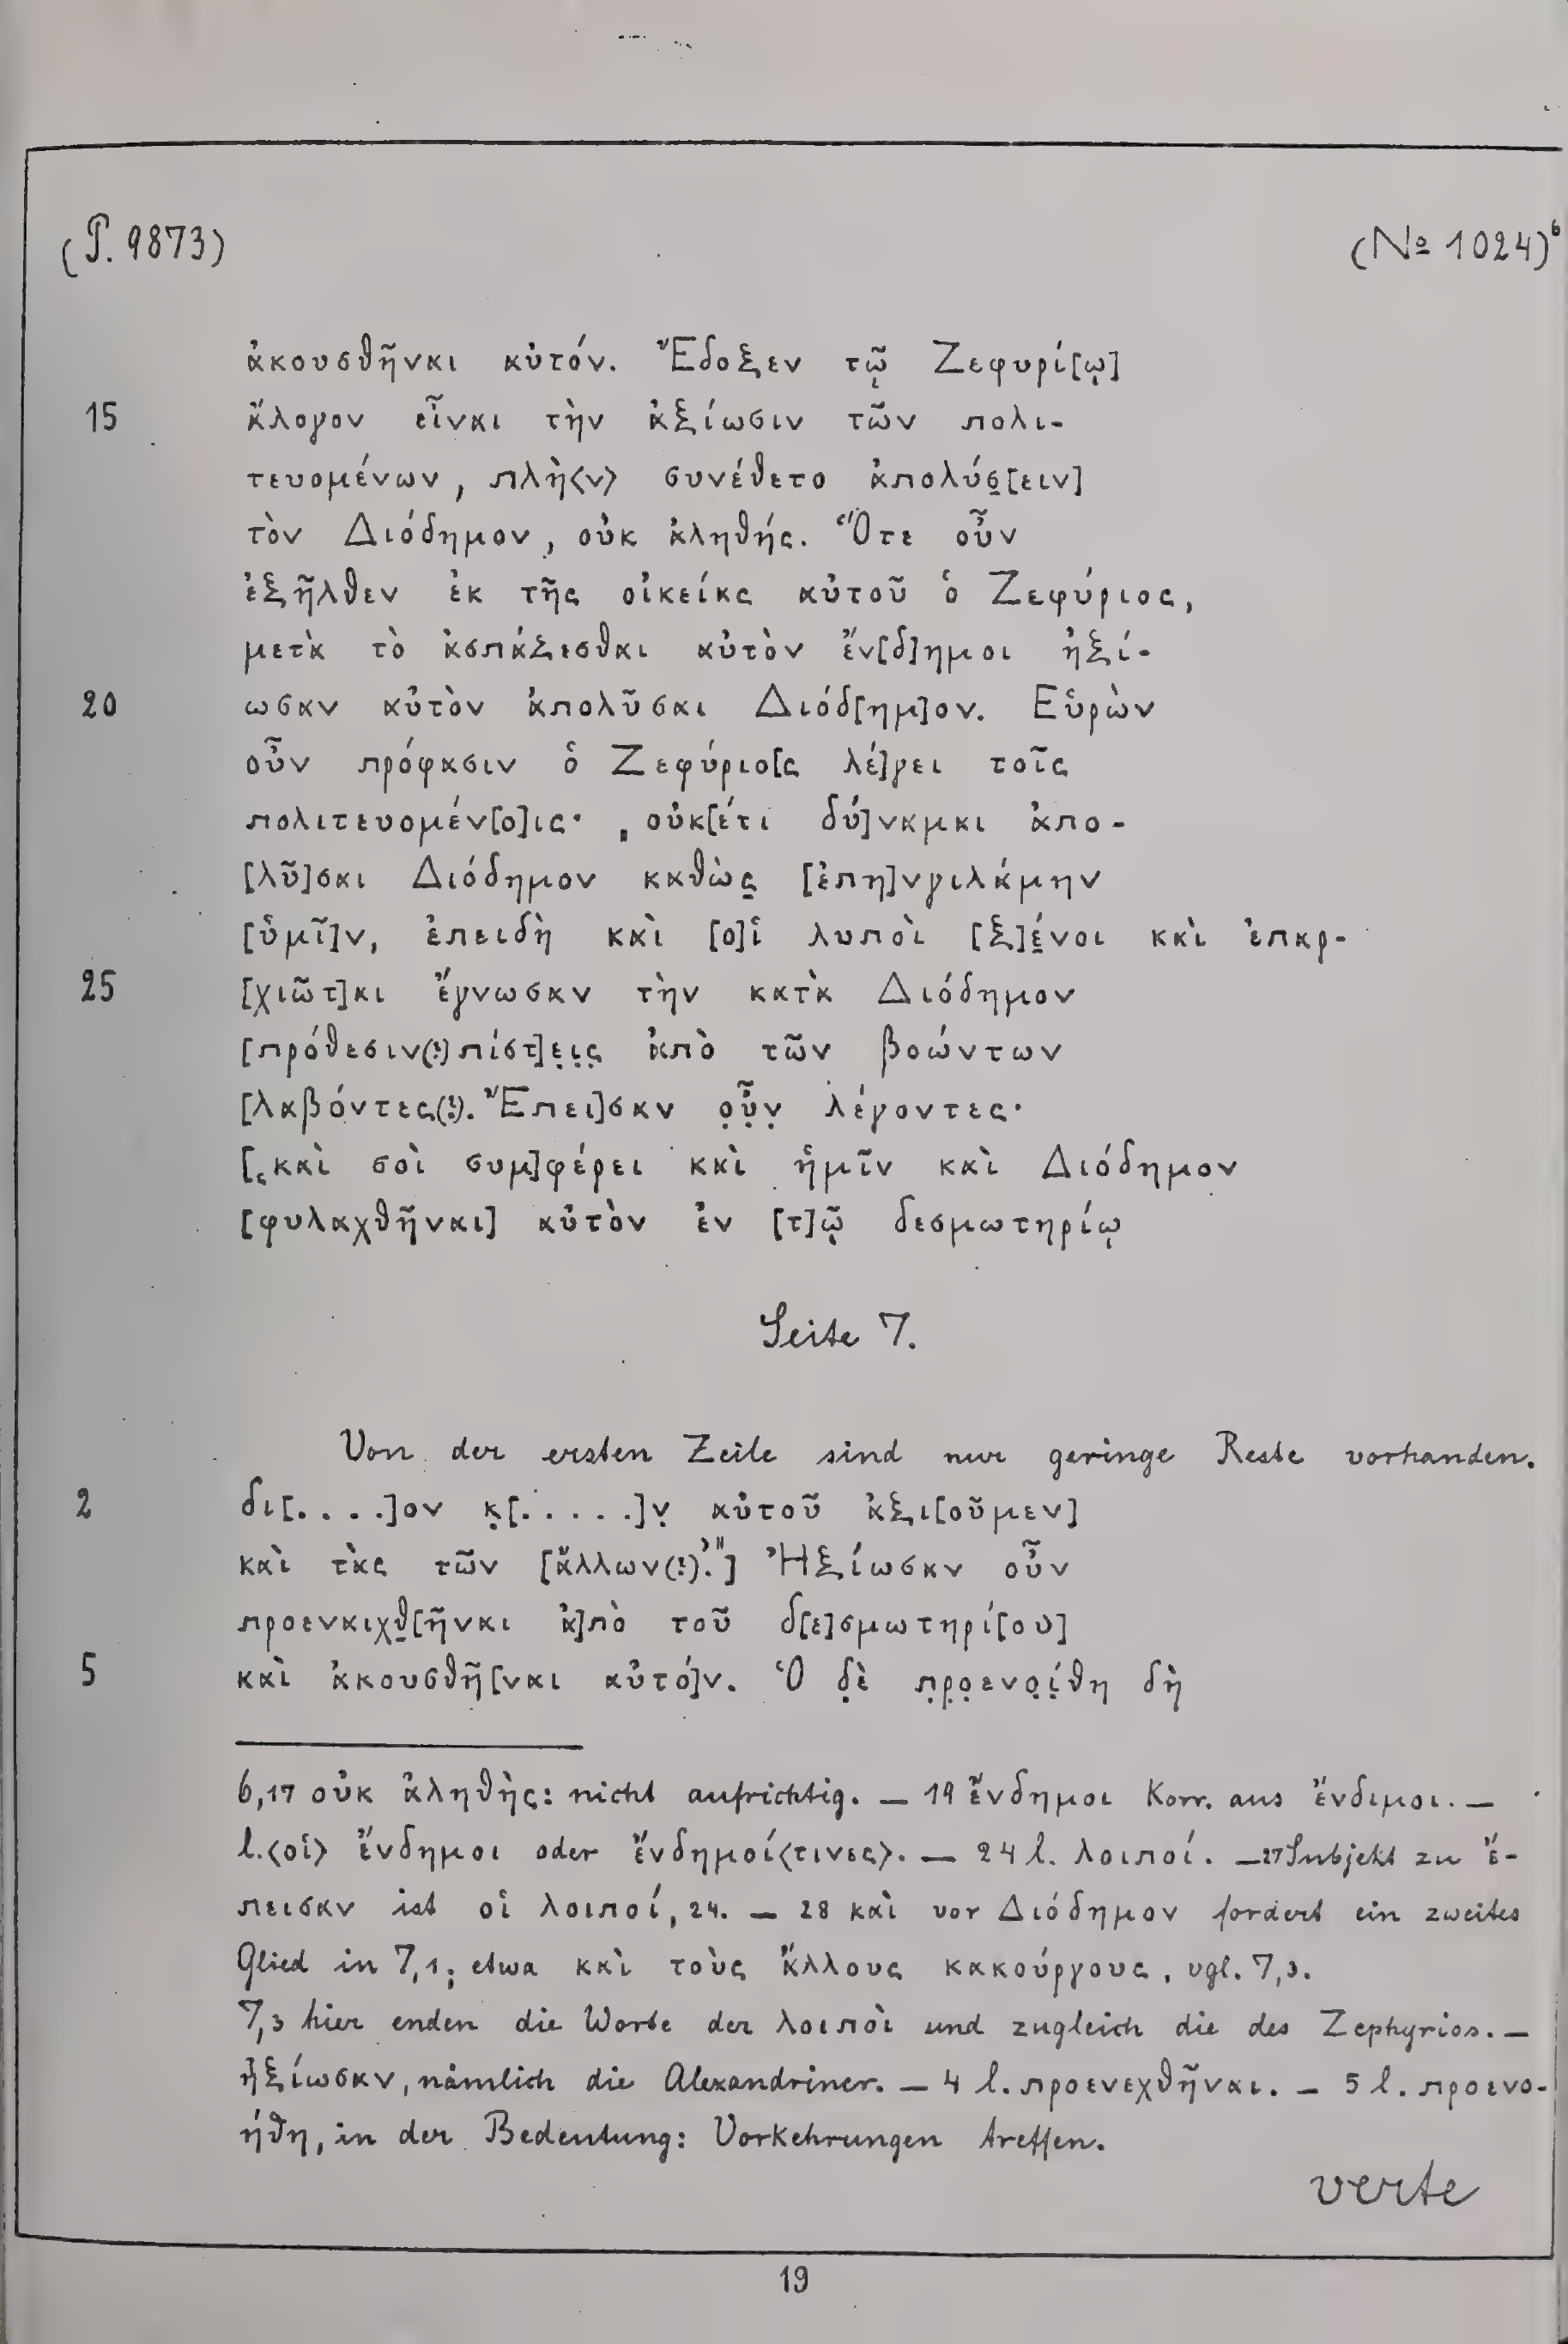 (P. 9873) (No 1024)⁶
ἀκουσθῆναι αὐτόν. Ἔδοξεν τῷ Ζεφυρί[ῳ]
15 ἄλογον εἶναι τὴν ἀξίωσιν τῶν πολι-
τευομένων, πλὴ<ν> συνέθετο ἀπολύσ̣[ειν]
τὸν Διόδημον, οὐκ ἀληθής. Ὅτε οὖν
ἐξῆλθεν ἐκ τῆς οἰκείας αὐτοῦ ὁ Ζεφύριος,
μετὰ τὸ ἀσπάξεσθαι αὐτὸν ἔν[δ]ημοι ἠξί-
20 ωσαν αὐτὸν ἀπολῦσαι Διόδ[ημ]ον. Εὑρὼν
οὖν πρόφασιν ὁ Ζεφύριο[ς λέ]γει τοῖς
πολιτευομέν[ο]ις· „οὐκ[έτι δύ]ναμαι ἀπο-
[λῦ]σαι Διόδημον καθὼς̣ [ἐπη]νγιλάμην
[ὑμῖ]ν, ἐπειδὴ καὶ [ο]ἱ λυποὶ [ξ]έ̣νοι καὶ ἐπαρ-
25 [χιῶτ]αι ἔγνωσαν τὴν κατὰ Διόδημον
[πρόθεσιν(?) πίστ]ε̣ι̣ς̣ ἀπὸ τῶν βοώντων
[λαβόντες(?). Ἔπει]σαν ο̣ὖ̣ν̣ λέγοντες·
[‚καὶ σοὶ συμ]φέρει καὶ ἡμῖν καὶ Διόδημον
[φυλαχθῆναι] αὐτὸν ἐν [τ]ῷ δεσμωτηρίῳ
Seite 7.
Von der ersten Zeile sind nur geringe Reste vorhanden.
2 δι[. . . .]ον κ̣[. . . . .]ν̣ αὐτοῦ ἀξι[οῦμεν]
καὶ τὰς τῶν [ἄλλων(?).’"] Ἠξίωσαν οὖν
προεναιχθ̣[ῆναι ἀ]πὸ τοῦ δ[ε]σμωτηρί[ου]
5 καὶ ἀκουσθῆ[ναι αὐτό]ν. Ὁ δ̣ὲ π̣ρ̣ο̣ενο̣ί̣θη δὴ
6,17 οὐκ ἀληθὴς: nicht aufrichtig. — 19 ἔνδημοι Korr. aus ἔνδιμοι. —
l. <οἱ> ἔνδημοι oder ἔνδημοί <τινες>. — 24 l. λοιποί. — 27 Subjekt zu ἔ-
πεισαν ist οἱ λοιποί, 24. — 28 καὶ vor Διόδημον fordert ein zweites
Glied in 7,1; etwa καὶ τοὺς ἄλλους κακούργους, vgl. 7,3.
7,3 hier enden die Worte der λοιποὶ und zugleich die des Zephyrios. —
ἠξίωσαν, nämlich die Alexandriner. — 4 l. προενεχθῆναι. — 5 l. προενο-
ήθη, in der Bedeutung: Vorkehrungen treffen.
verte
19